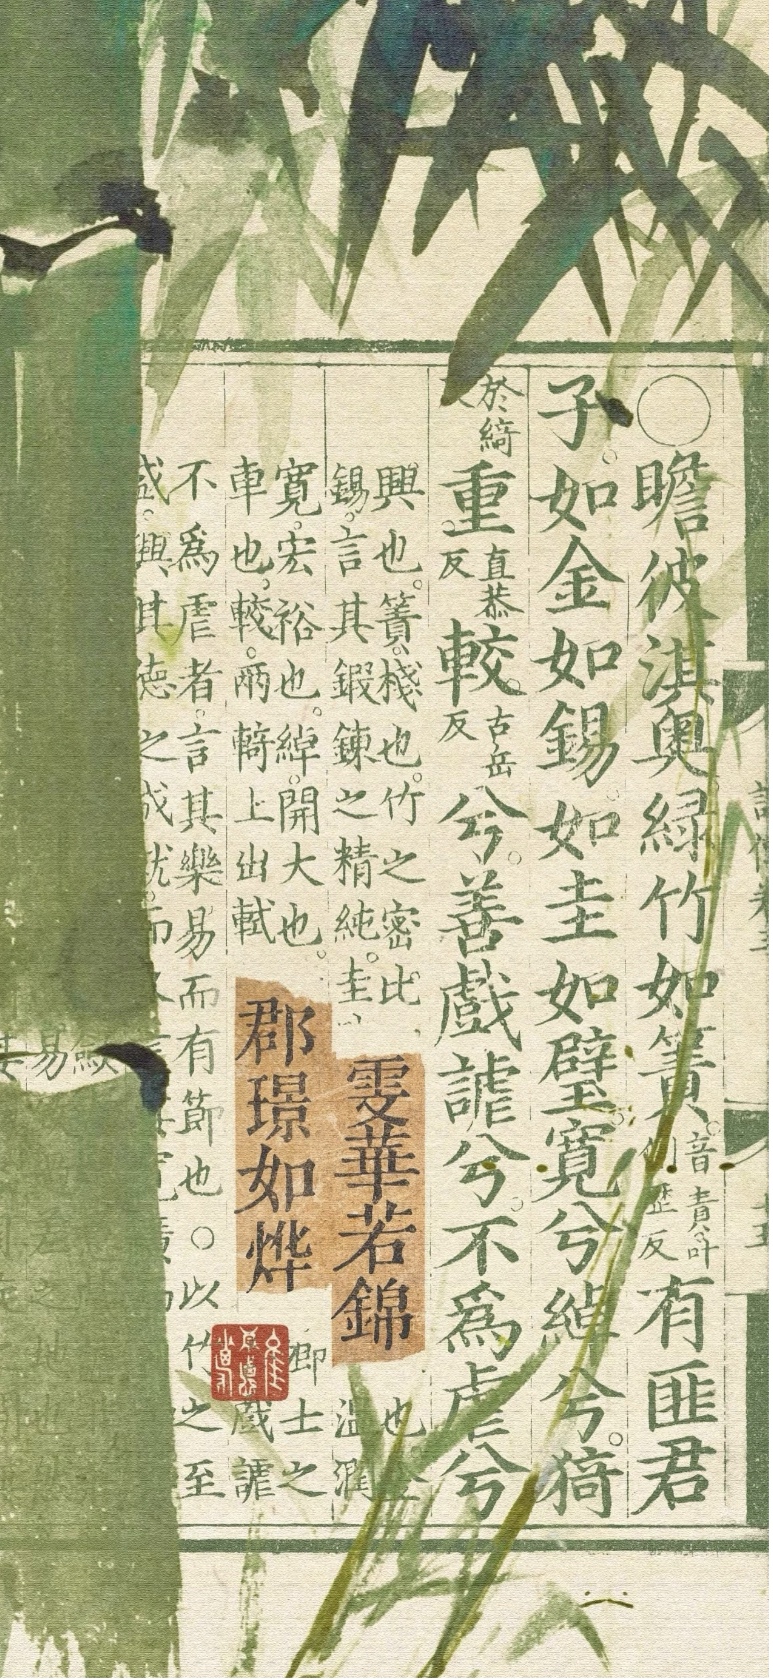 ○瞻彼淇奧綠竹如簀音責叶側歷反有匪君
子如金如錫如圭如璧寬兮綽兮猗
於綺反重直恭反較古岳反兮善戲謔兮不為虐兮
興也簀棧也竹之密比
也金
錫言其鍛鍊之精純圭
溫潤
雯華若錦
寬宏裕也綽開大也
卿士之
車也較兩輢上出軾
戲謔
郡璟如烨
不為虐者言其樂易而有節也○以竹之至
盛興其德之成就而